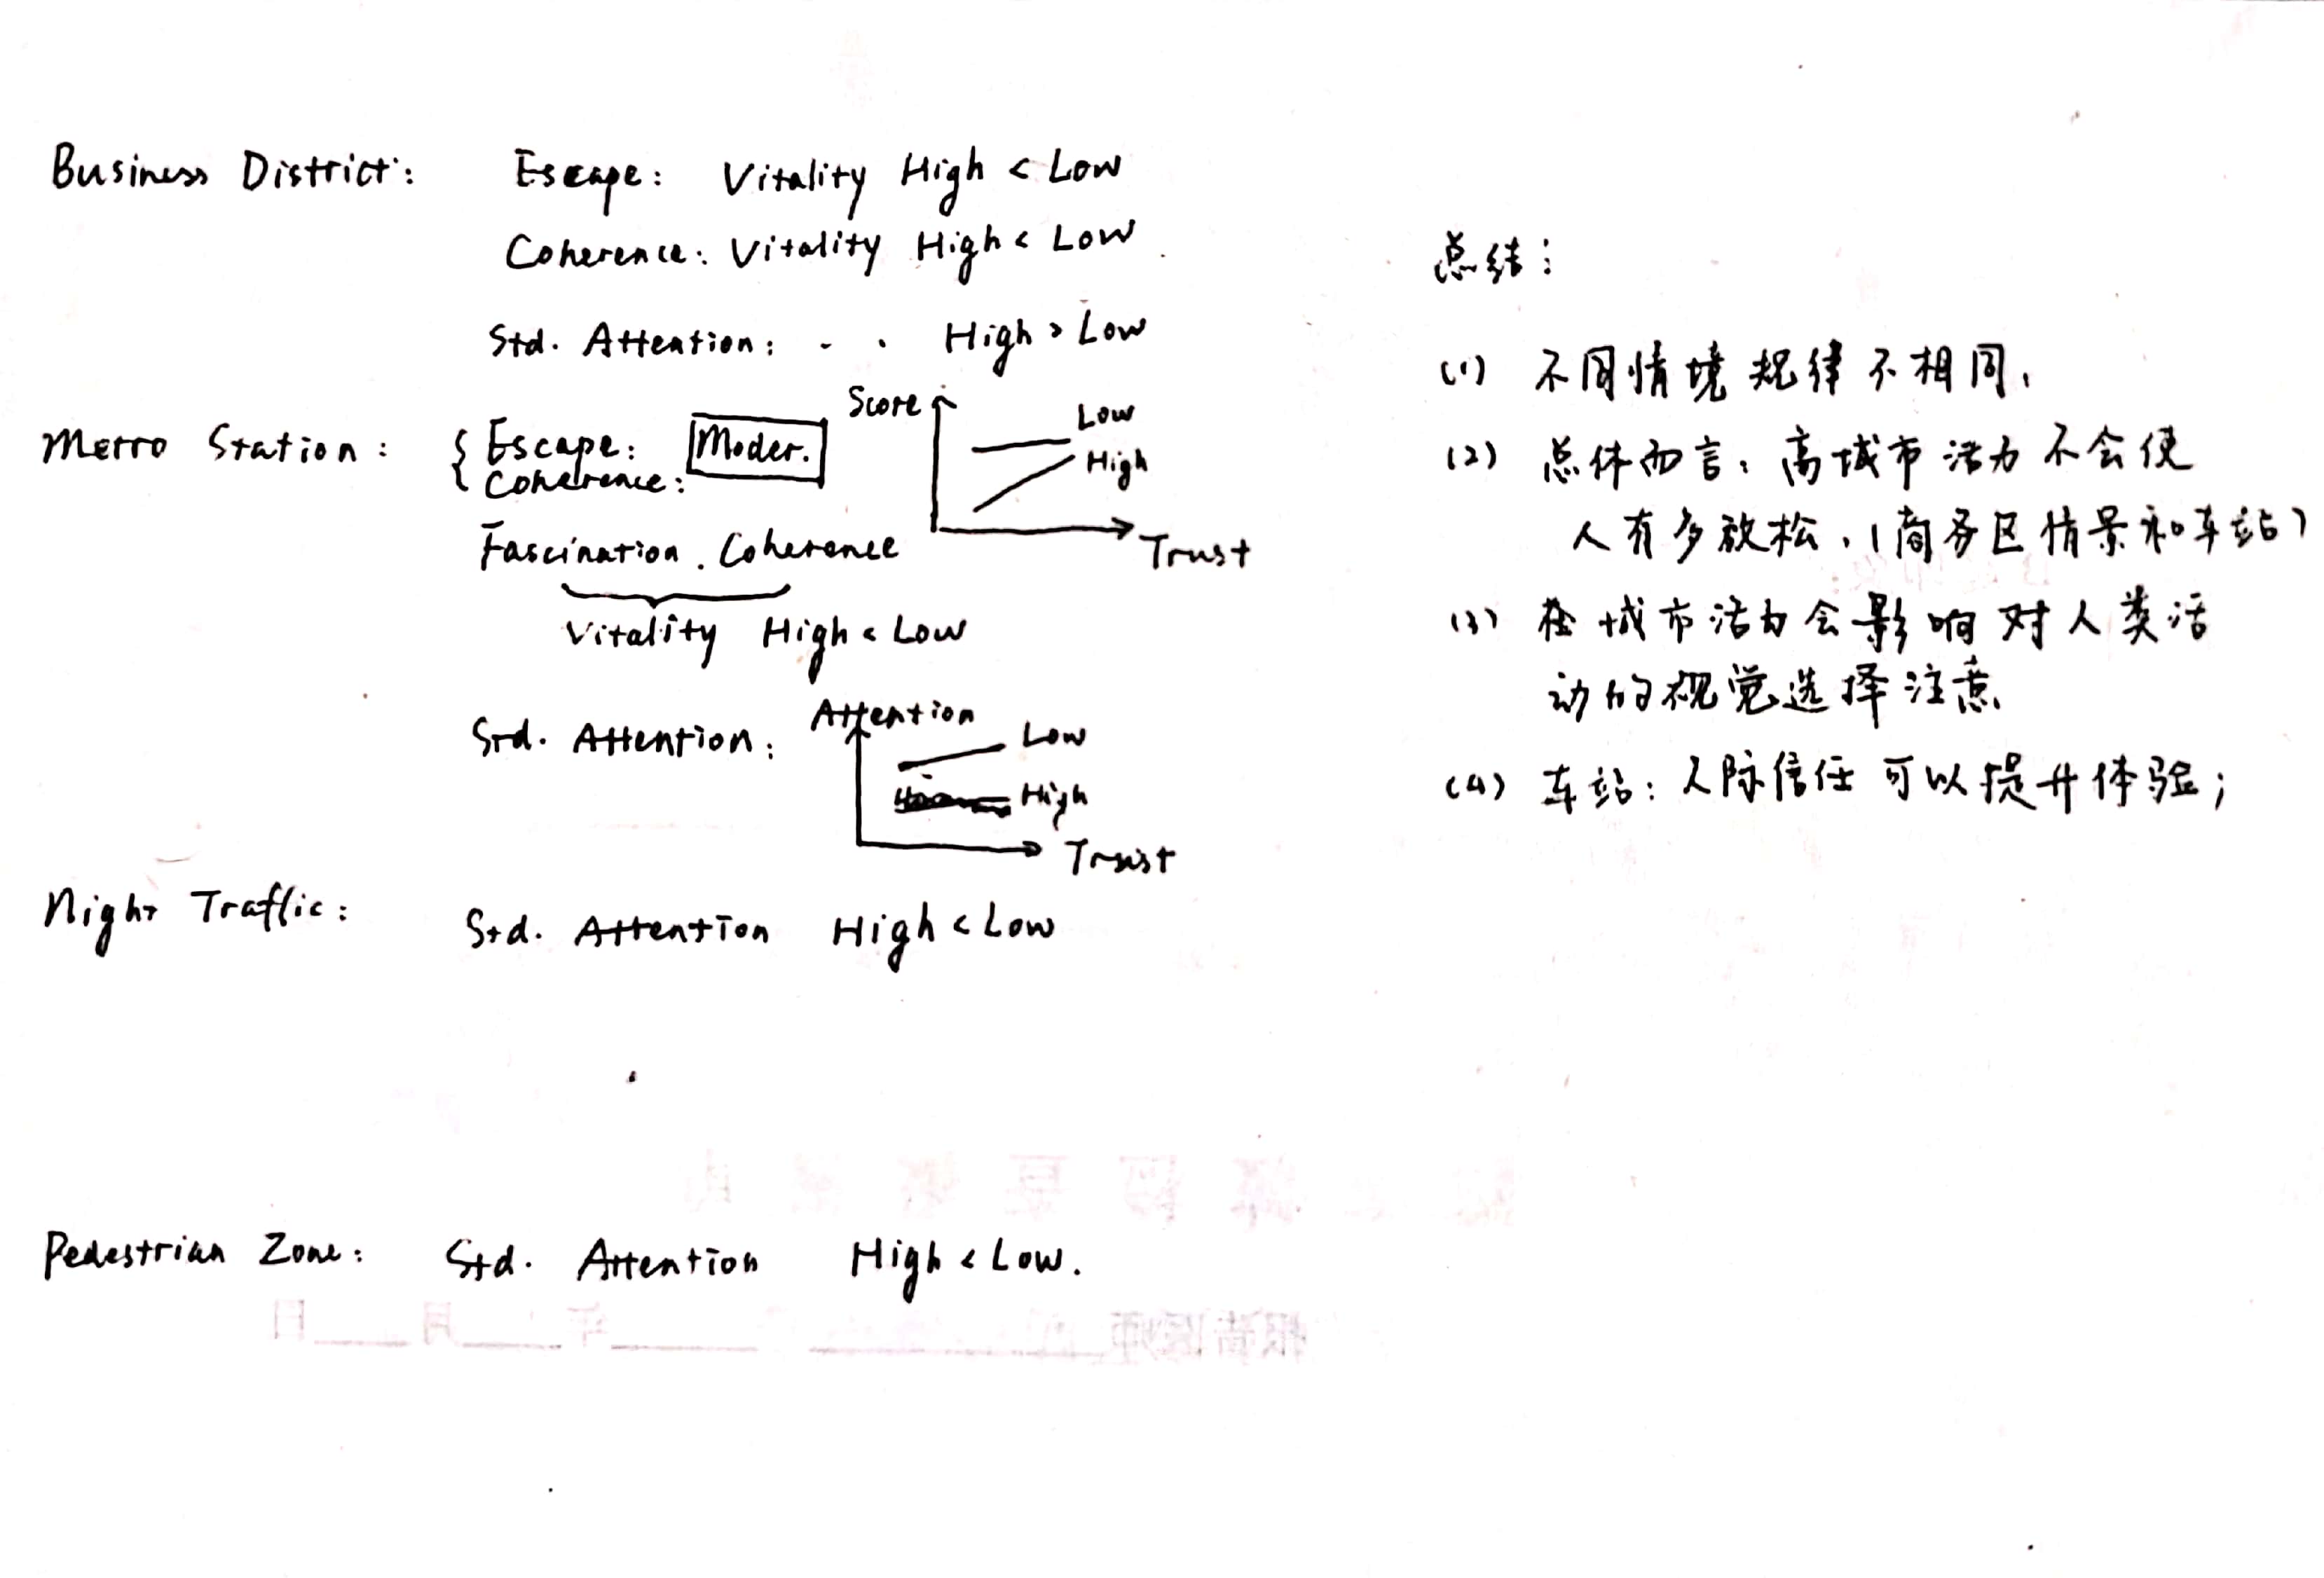 Business District: Escape: Vitality High < Low
Coherence: Vitality High < Low
Std. Attention: - . High > Low
Metro Station: { Escape: Moder.
Coherence:
Score
Low
High
Trust
Fascination. Coherence
Vitality High < Low
Std. Attention:
Attention
Low
High
Trust
Night Traffic: Std. Attention High < Low
Pedestrian Zone: Std. Attention High < Low.
总结:
(1) 不同情境规律不相同,
(2) 总体而言,高城市活力不会使
人有多放松,(商务区情景和车站)
(3) 城市活力会影响对人类活
动的视觉选择注意
(4) 车站:人际信任可以提升体验;
报告医师 年 月 日